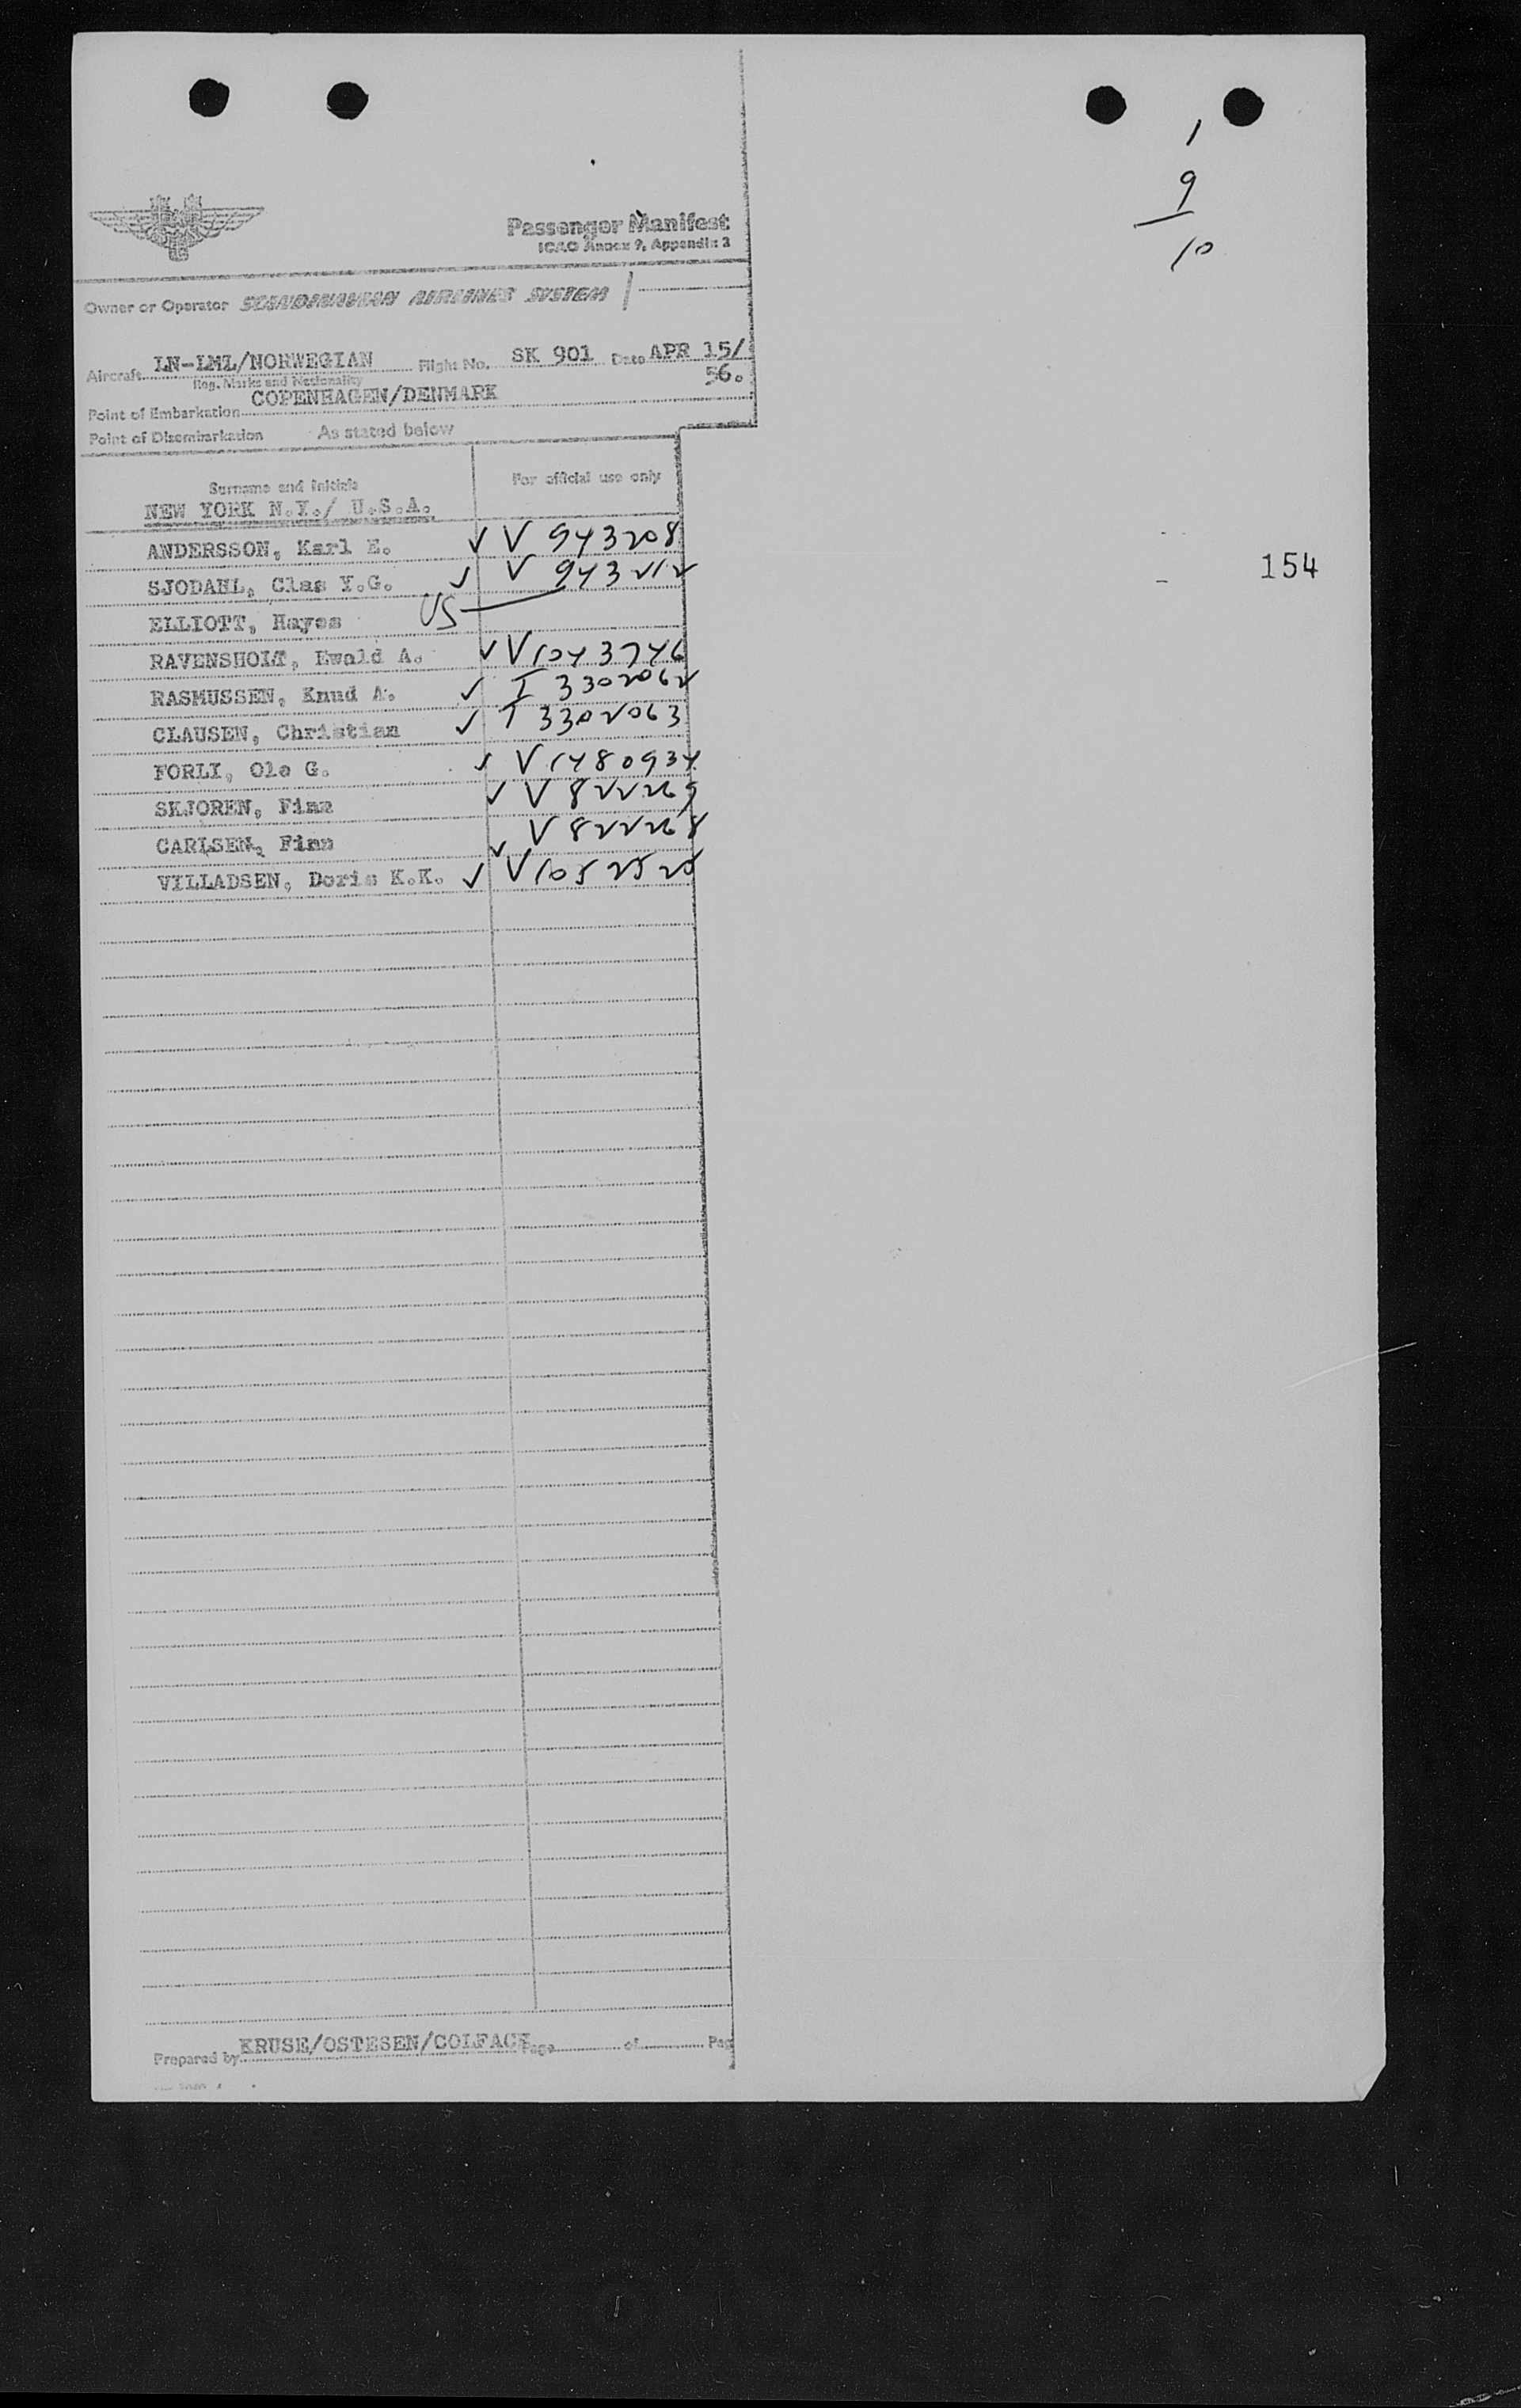 1
9
10
Passenger Manifest
ICAO Annex 9, Appendix 3
Owner or Operator SCANDINAVIAN AIRLINES SYSTEM
Aircraft LN-LML/NORWEGIAN Flight No. SK 901 Date APR 15/
Reg. Marks and Nationality 56.
Point of Embarkation COPENHAGEN/DENMARK
Point of Disembarkation As stated below
Surname and Initials For official use only
NEW YORK N.Y./ U.S.A.
ANDERSSON, Karl E. ✓ V 943208
SJODAHL, Clas Y.G. ✓ V 943212
154
ELLIOTT, Hayes US
RAVENSHOLT, Ewald A. ✓ V1043746
RASMUSSEN, Knud A. ✓ I 3302062
CLAUSEN, Christian ✓ I 3302063
FORLI, Ole G. ✓ V1480934
SKJOREN, Finn ✓ V 822265
CARLSEN, Finn ✓ V 822268
VILLADSEN, Doris K.K. ✓ V1052520
Prepared by KRUSE/OSTESEN/COLFACH Page of Pag